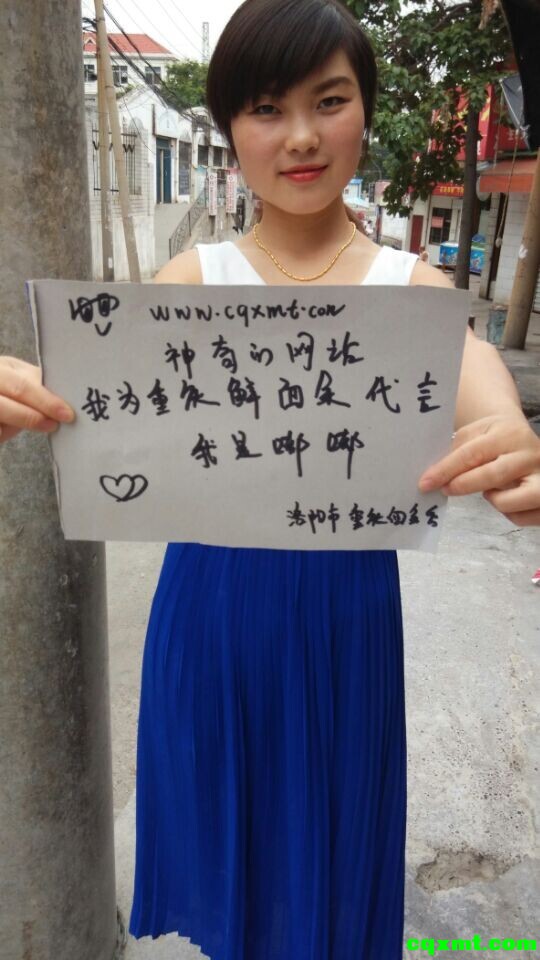 www.cqxmt.com
神奇的网站
我为重庆鲜面条代言
我是嘟嘟
洛阳市重庆面条
cqxmt.com